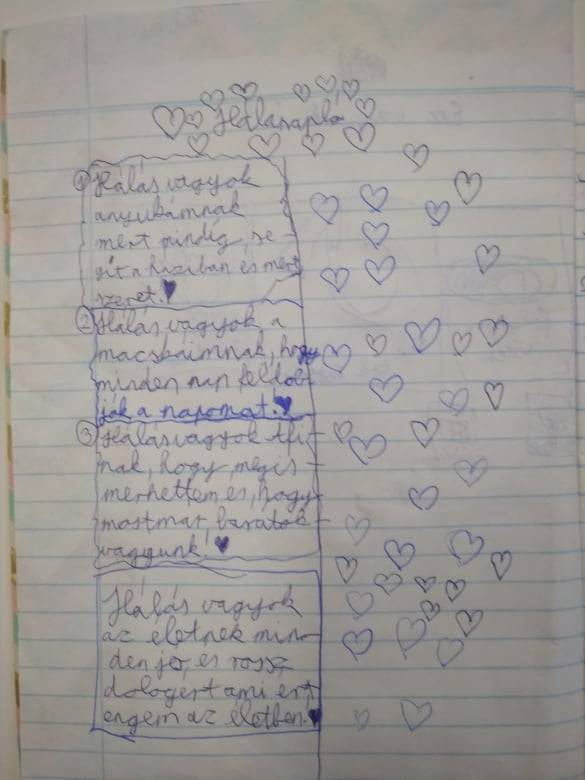 Hálanapló
① Hálás vagyok
anyukámnak
mert mindig se-
gít a háziban és mert
szeret.
② Hálás vagyok a
macskáimnak, hogy
minden nap feldob-
ják a napomat.
③ Hálás vagyok Afi-
nak, hogy megis-
merhettem és, hogy
mostmár barátok
vagyunk!
Hálás vagyok
az életnek min-
den jó, és rossz
dologért ami ért
engem az életben.